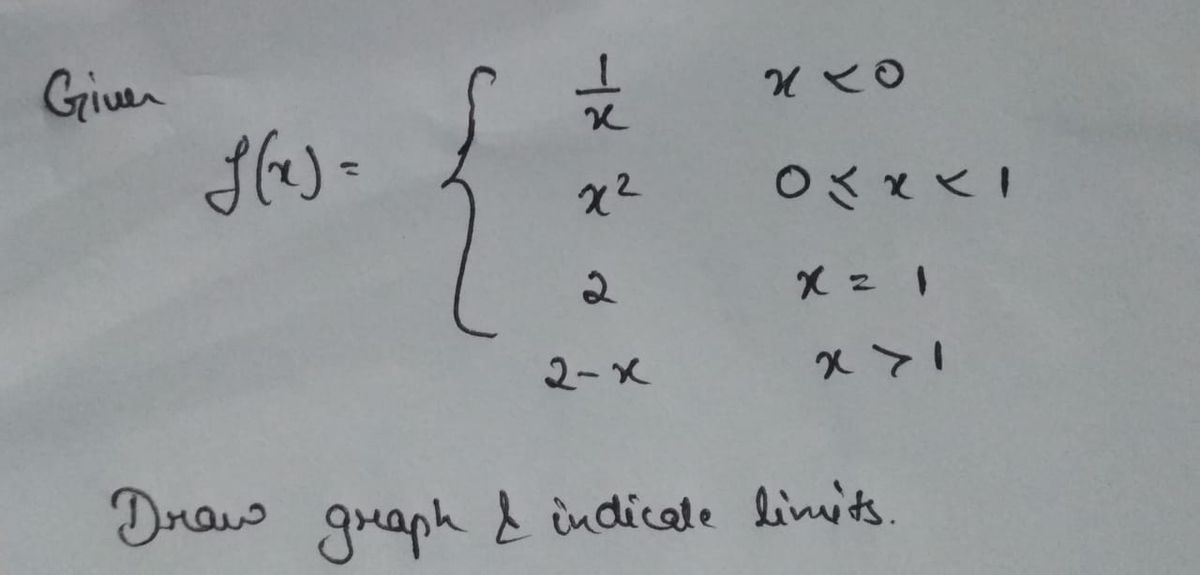 Given
f(x) = { 1/x x < 0
x² 0 ≤ x < 1
2 x = 1
2-x x > 1
Draw graph & indicate limits.